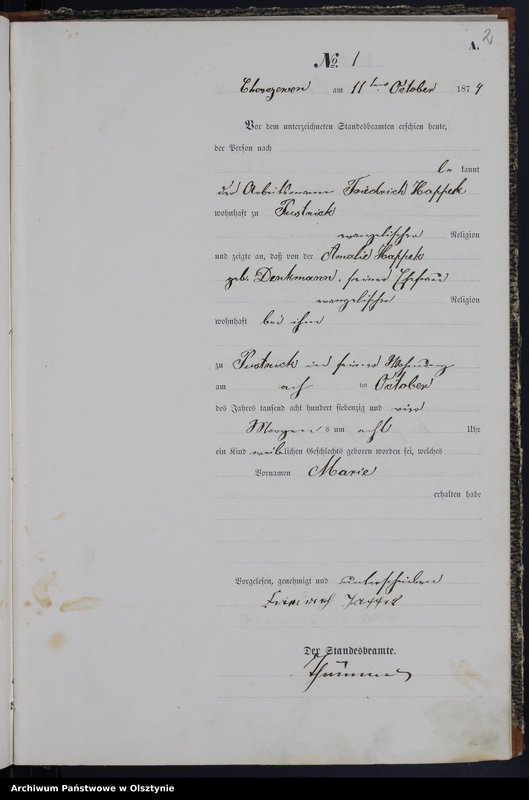 2
A.
No. 1
am 11ten October 1874
Vor dem unterzeichneten Standesbeamten erschien heute,
der Person nach
be kannt
der Arbeitsmann Friedrich Kappek
wohnhaft zu Pustnick
evangelischer Religion
und zeigte an, daß von der Amalie Kappek
geb. Denkmann, seiner Ehefrau
evangelischer Religion
wohnhaft bei ihm
zu Pustnick in seiner Wohnung
am acht ten October
des Jahres tausend acht hundert siebenzig und vier
Morgen s um acht Uhr
ein Kind weiblichen Geschlechts geboren worden sei, welches
Vornamen Marie
erhalten habe
Vorgelesen, genehmigt und unterschrieben
Friedrich
Der Standesbeamte.
Archiwum Państwowe w Olsztynie